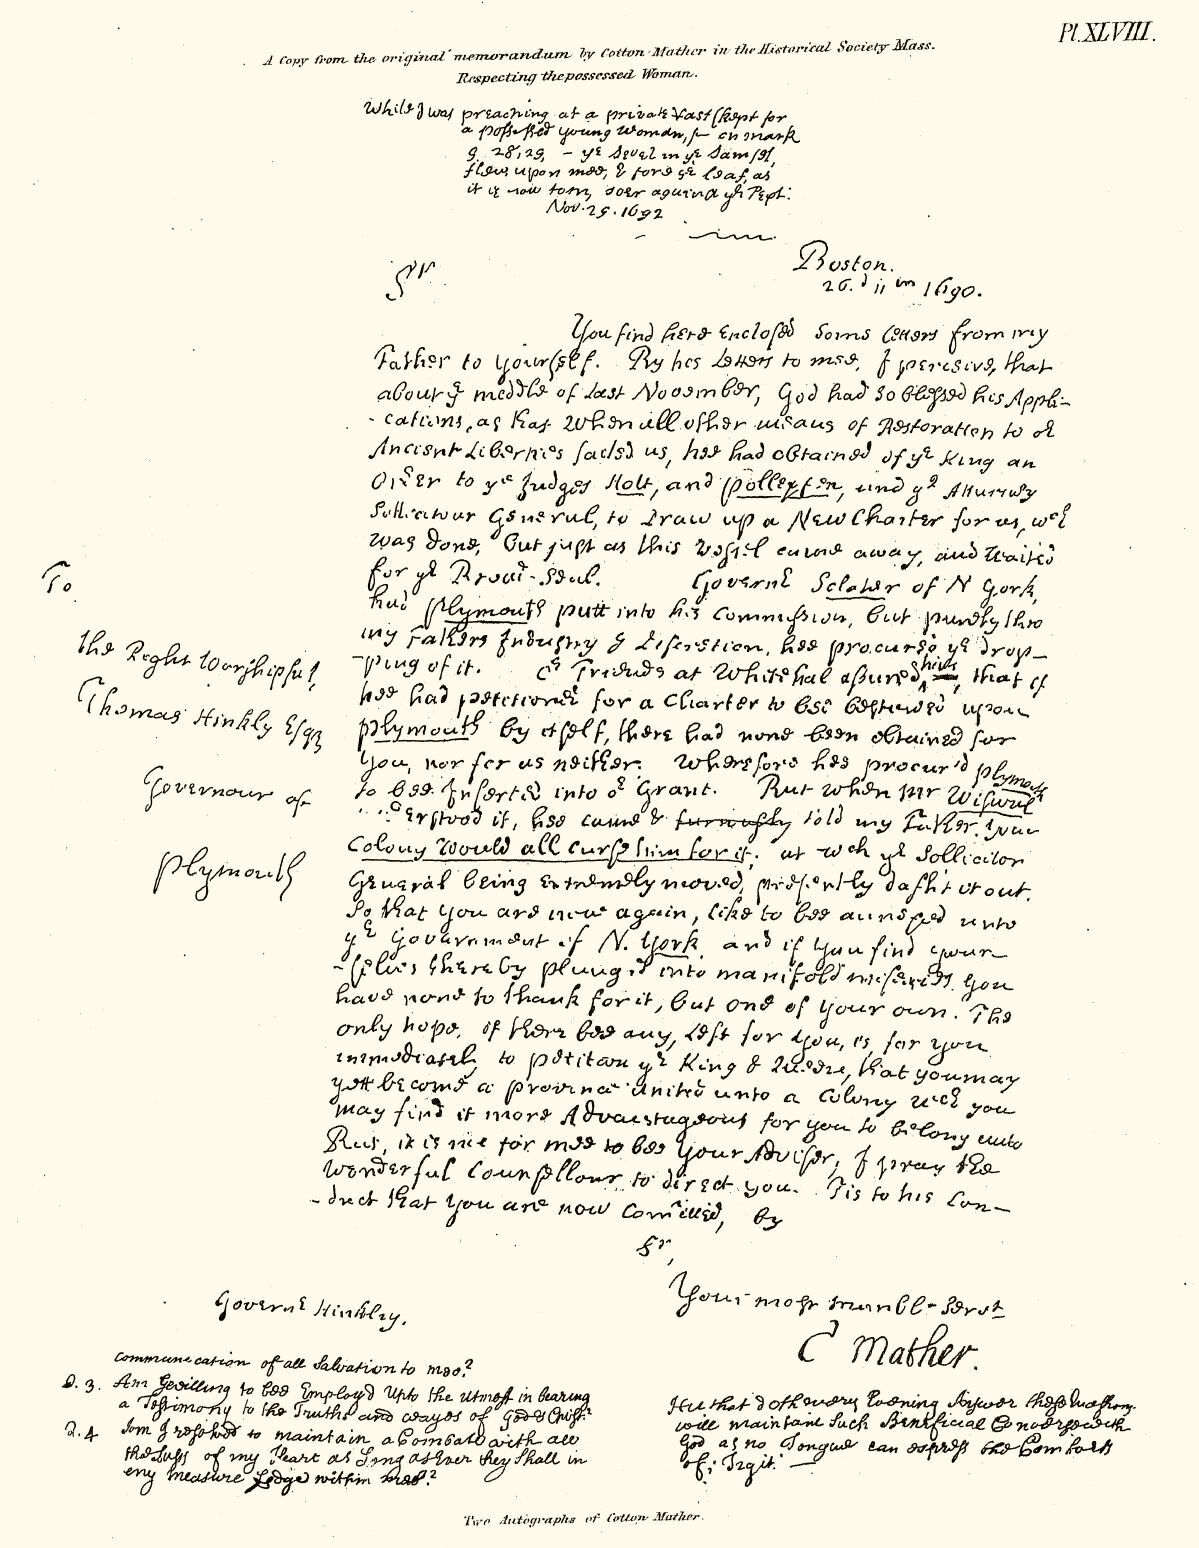 Pl. XLVIII.
A Copy from the original memorandum by Cotton Mather in the Historical Society Mass.
Respecting the possessed Woman.
While I was preaching at a private Fast (kept for
a possessed young woman,) on mark
9. 28, 29, - ye Devel in ye Damsel,
flew upon mee, & tore ye leaf, as
it is now torn, over against ye Text:
Nov. 29. 1692
Boston.
26.d 11 m 1690.
Sr
You find here enclosed some letters from my
Father to yourself. By his Letters to mee, I perceive, that
about ye meddle of last November, God had so blessed his Appli-
-cations, as that when all other means of Restoration to or
Ancient Liberties failed us, hee had obtained of ye King an
Order to ye Judges Holt, and Pollexfen, and ye Atturney
Sollicitour General, to Draw up a New Charter for us, wch
was done, but just as this Vessel came away, and waited
for ye Broad-Seal. Governr Sclater of N York,
had Plymouth putt into his Commission, but purely thro
my Fathers Industry & Discretion, hee procured ye drop-
-ping of it. or Friends at Whitehal assured him, that if
hee had petitioned for a Charter to bee bestowed upon
Plymouth by itself, there had none been obtained for
You, nor for us neither. Wherefore hee procur'd Plymouth
to bee Inserted into or Grant. But when Mr Wiswal
understood it, hee came & told my Father, Your
Colony would all curse him for it; at wch ye Sollicitor
General being extremely moved, presently dash't it out.
So that you are now again, like to bee annexed unto
ye Government of N. York. and if you find your-
-selves thereby plung'd into manifold miseries, You
have none to thank for it, but one of your own. The
only hope, if there bee any, left for you, is for you
immediately to petition ye King & Queene, that you may
yett become a province united unto a Colony wch you
may find it more Advantageous for you to belong unto
But, it is not for mee to bee Your Adviser, I pray the
wonderful Counsellour to direct you. Tis to his Con-
-duct that You are now Com'itted, by
Sr,
Your most Humble Servt
C Mather.
To
the Right Worshipful,
Thomas Hinkly Esqr
Governour of
Plymouth
Governr Hinkley.
Communication of all Salvation to mee?
Q. 3. Am I willing to bee Employ'd Upto the utmost in bearing
a Testimony to the Truths and wayes of God & Christ?
Q. 4 Am I resolved to maintain a Combate with all
the Lusts of my Heart as Long as Ever they shall in
any measure Lodge within mee?
Hee that doth every Evening Answer these Questions
will maintain such Beneficial Converse with
God as no Tongue can express the Comforts
of it.
Two Autographs of Cotton Mather.